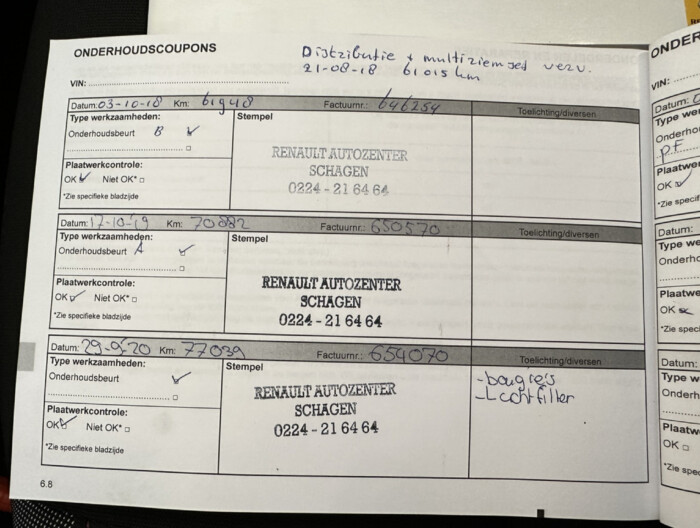 ONDERHOUDSCOUPONS
Distributie + multiriem set verv.
21-08-18 61015 km
VIN:
Datum: 03-10-18 Km: 61948 Factuurnr.: 646254 Toelichting/diversen
Type werkzaamheden: Stempel
Onderhoudsbeurt B
Plaatwerkcontrole:
OK Niet OK*
*Zie specifieke bladzijde
RENAULT AUTOZENTER
SCHAGEN
0224-21 64 64
Datum: 17-10-'19 Km: 70882 Factuurnr.: 650570 Toelichting/diversen
Type werkzaamheden: Stempel
Onderhoudsbeurt A
Plaatwerkcontrole:
OK Niet OK*
*Zie specifieke bladzijde
RENAULT AUTOZENTER
SCHAGEN
0224-21 64 64
Datum: 29-9-20 Km: 77039 Factuurnr.: 654070 Toelichting/diversen
Type werkzaamheden: Stempel
Onderhoudsbeurt
Plaatwerkcontrole:
OK Niet OK*
*Zie specifieke bladzijde
RENAULT AUTOZENTER
SCHAGEN
0224-21 64 64
-bougies
-Luchtfilter
6.8
ONDER
VIN:
Datum:
Type we
Onderho
PF
Plaatwe
OK
*Zie specif
Datum:
Type we
Onderho
Plaatwe
OK
*Zie speci
Datum:
Type w
Onderh
Plaatw
OK
*Zie spec